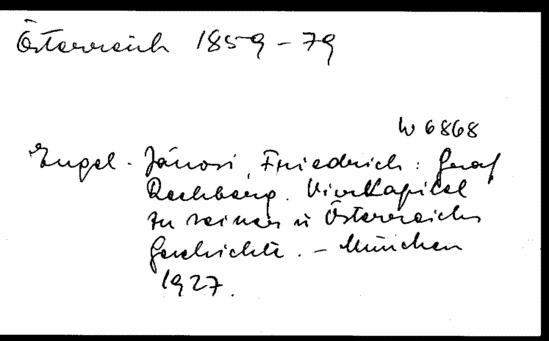 Österreich 1859-79
W 6868
Engel-Jánosi, Friedrich: Graf
Rechberg. Vier Kapitel
zu seiner u Österreichs
Geschichte. - München
1927.